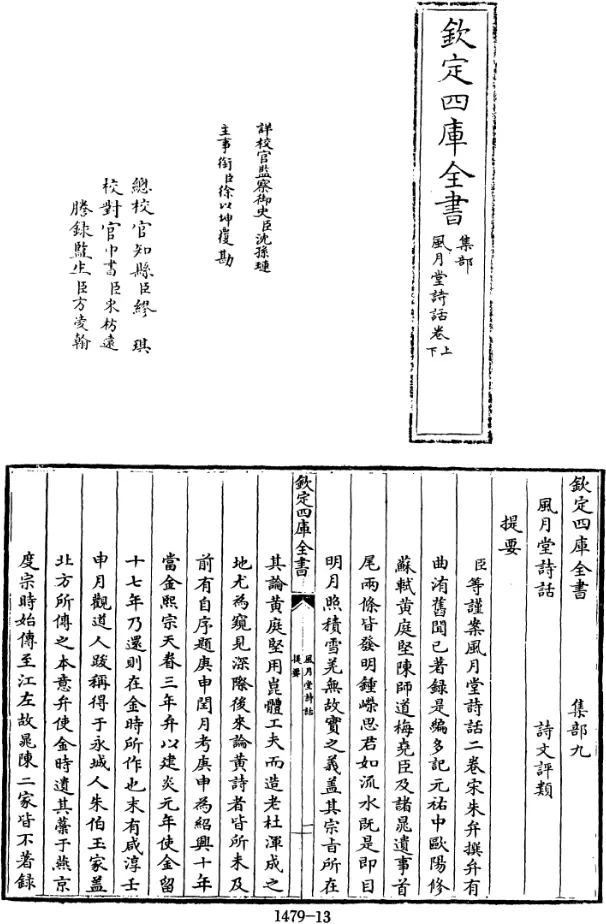 欽定四庫全書
集部
風月堂詩話卷上下
詳校官監察御史臣沈孫璉
主事銜臣徐以坤覆勘
總校官知縣臣繆琪
校對官中書臣宋枋遠
謄錄監生臣方凌翰
欽定四庫全書 集部九
風月堂詩話 詩文評類
提要
臣等謹案風月堂詩話二卷宋朱弁撰弁有
曲洧舊聞已著錄是編多記元祐中歐陽修
蘇軾黃庭堅陳師道梅堯臣及諸晁遺事首
尾兩條皆發明鍾嶸思君如流水既是即目
明月照積雪羌無故實之義蓋其宗旨所在
欽定四庫全書
風月堂詩話
提要
一
其論黃庭堅用崑體工夫而造老杜渾成之
地尤為窺見深際後來論黃詩者皆所未及
前有自序題庚申閏月考庚申為紹興十年
當金熙宗天眷三年弁以建炎元年使金留
十七年乃還則在金時所作也末有咸淳壬
申月觀道人跋稱得于永城人朱伯玉家蓋
北方所傳之本意弁使金時遺其藁于燕京
度宗時始傳至江左故晁陳二家皆不著錄
1479-13